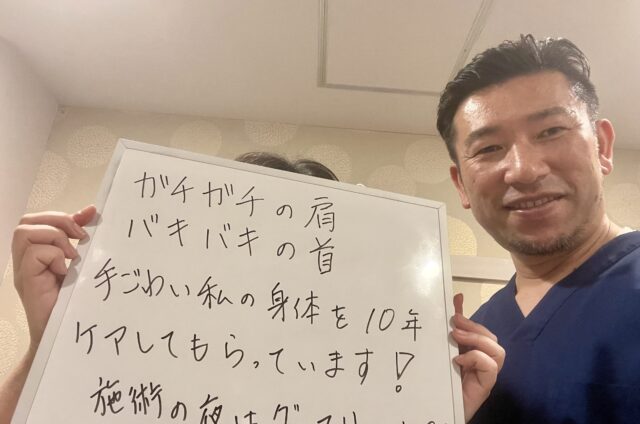 ガチガチの肩
バキバキの首
手ごわい私の身体を10年
ケアしてもらっています!
施術の夜はグ